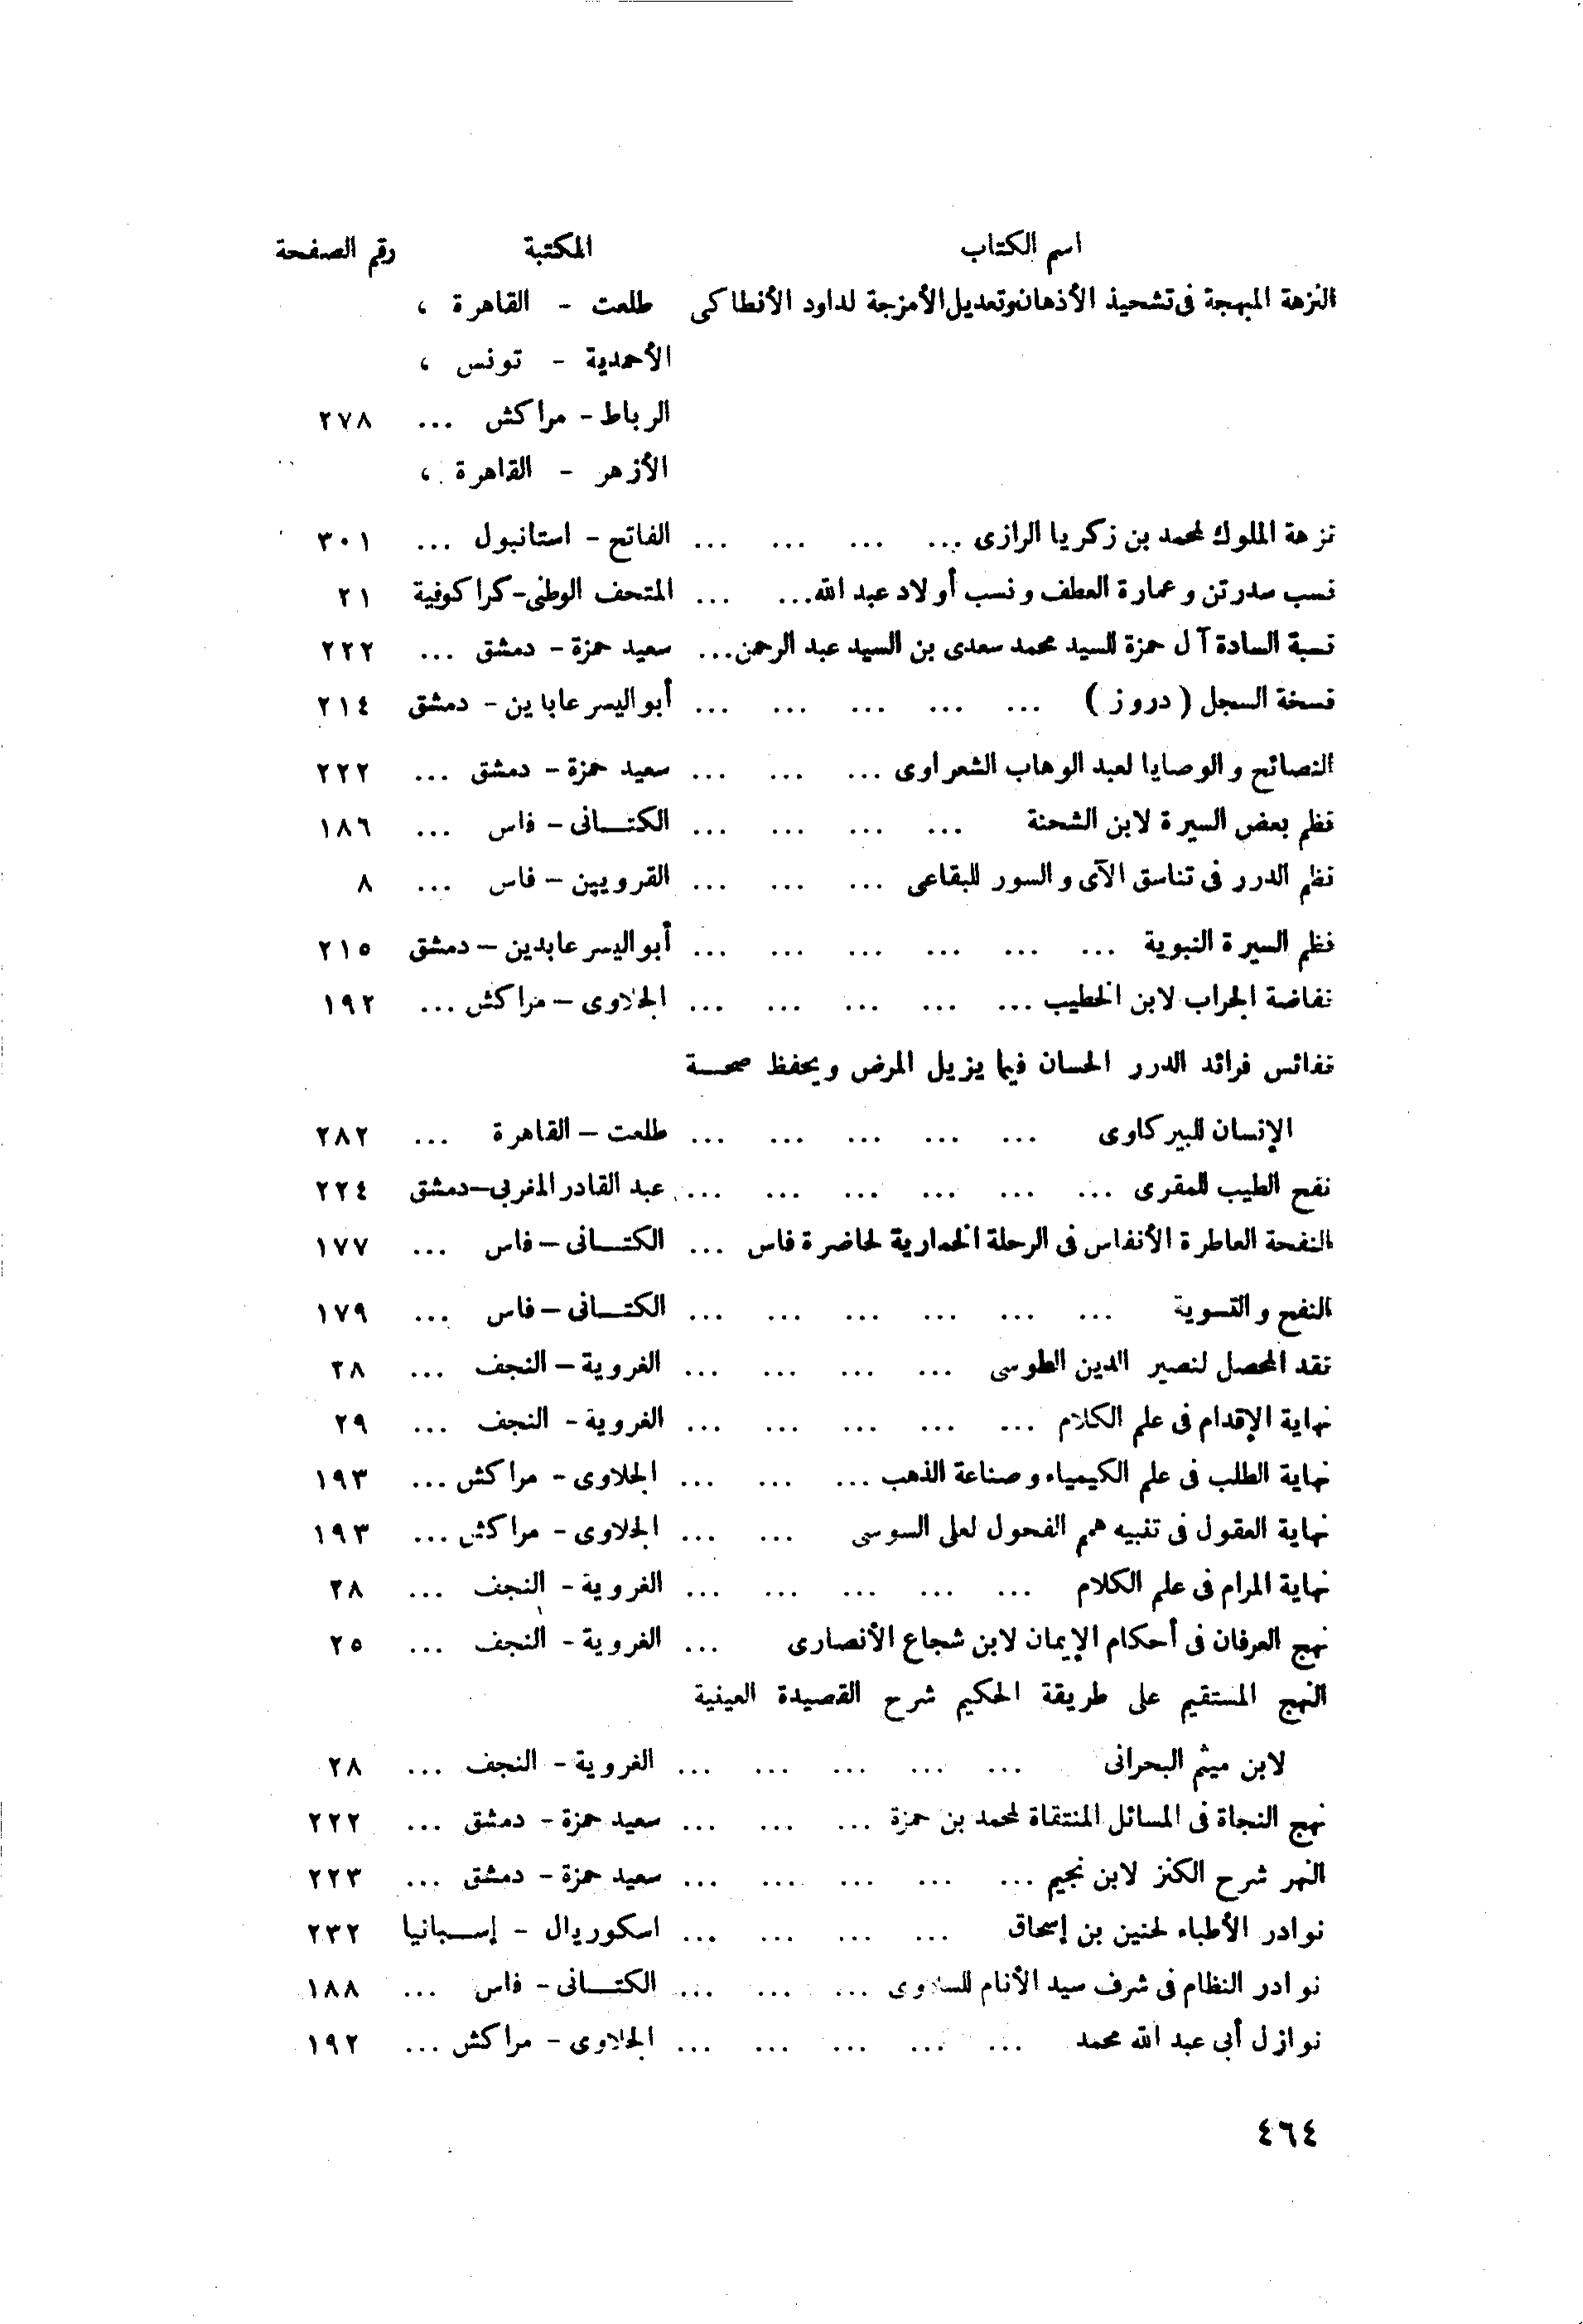 اسم الكتاب المكتبة رقم الصفحة
النزهة المبهجة فى تشحيذ الأذهان وتعديل الأمزجة لداود الأنطاكى طلعت - القاهرة ،
الأحمدية - تونس ،
الرباط - مراكش ... ٢٧٨
الأزهر - القاهرة ،
نزهة الملوك لمحمد بن زكريا الرازى ... ... ... ... الفاتح - استانبول ... ٣٠١
نسب صدرتن وعمارة العطف ونسب أولاد عبد الله... ... المتحف الوطنى-كراكوفية ٢١
نسبة السادة آل حمزة للسيد محمد سعدى بن السيد عبد الرحمن... سعيد حمزة - دمشق ... ٢٢٢
نسخة السجل ( دروز ) ... ... ... ... ... أبو اليسر عابدين - دمشق ٢١٤
النصائح والوصايا لعبد الوهاب الشعراوى ... ... ... سعيد حمزة - دمشق ... ٢٢٢
نظم بعض السيرة لابن الشحنة ... ... ... ... الكتـــانى - فاس ... ١٨٦
نظم الدرر فى تناسق الآى والسور للبقاعى ... ... ... القرويين - فاس ... ٨
نظم السيرة النبوية ... ... ... ... ... ... أبو اليسر عابدين - دمشق ٢١٥
نفاضة الجراب لابن الخطيب ... ... ... ... ... الجلاوى - مراكش ... ١٩٢
نفائس فرائد الدرر الحسان فيما يزيل المرض ويحفظ صحـــة
الإنسان للبيركاوى ... ... ... ... ... طلعت - القاهرة ... ٢٨٢
نفح الطيب للمقرى ... ... ... ... ... ... عبد القادر المغربى-دمشق ٢٢٤
النفحة العاطرة الأنفاس فى الرحلة الخمارية لحاضرة فاس ... الكتـــانى - فاس ... ١٧٧
النفح والتسوية ... ... ... ... ... ... الكتـــانى - فاس ... ١٧٩
نقد المحصل لنصير الدين الطوسى ... ... ... ... الغروية - النجف ... ٢٨
نهاية الإقدام فى علم الكلام ... ... ... ... ... الغروية - النجف ... ٢٩
نهاية الطلب فى علم الكيمياء وصناعة الذهب ... ... ... الجلاوى - مراكش ... ١٩٣
نهاية العقول فى تنبيه همم الفحول لعلى السوسى ... ... الجلاوى - مراكش ... ١٩٣
نهاية المرام فى علم الكلام ... ... ... ... ... الغروية - النجف ... ٢٨
نهج العرفان فى أحكام الإيمان لابن شجاع الأنصارى ... الغروية - النجف ... ٢٥
النهج المستقيم على طريقة الحكيم شرح القصيدة العينية
لابن ميثم البحرانى ... ... ... ... ... الغروية - النجف ... ٢٨
نهج النجاة فى المسائل المنتقاة لمحمد بن حمزة ... ... ... سعيد حمزة - دمشق ... ٢٢٢
النهر شرح الكنز لابن نجيم ... ... ... ... ... سعيد حمزة - دمشق ... ٢٢٣
نوادر الأطباء لحنين بن إسحاق ... ... ... ... اسكوريال - إســـبانيا ٢٣٢
نوادر النظام فى شرف سيد الأنام للسلاوى ... ... ... الكتـــانى - فاس ... ١٨٨
نوازل أبى عبد الله محمد ... ... ... ... ... الجلاوى - مراكش ... ١٩٢
٤٦٤